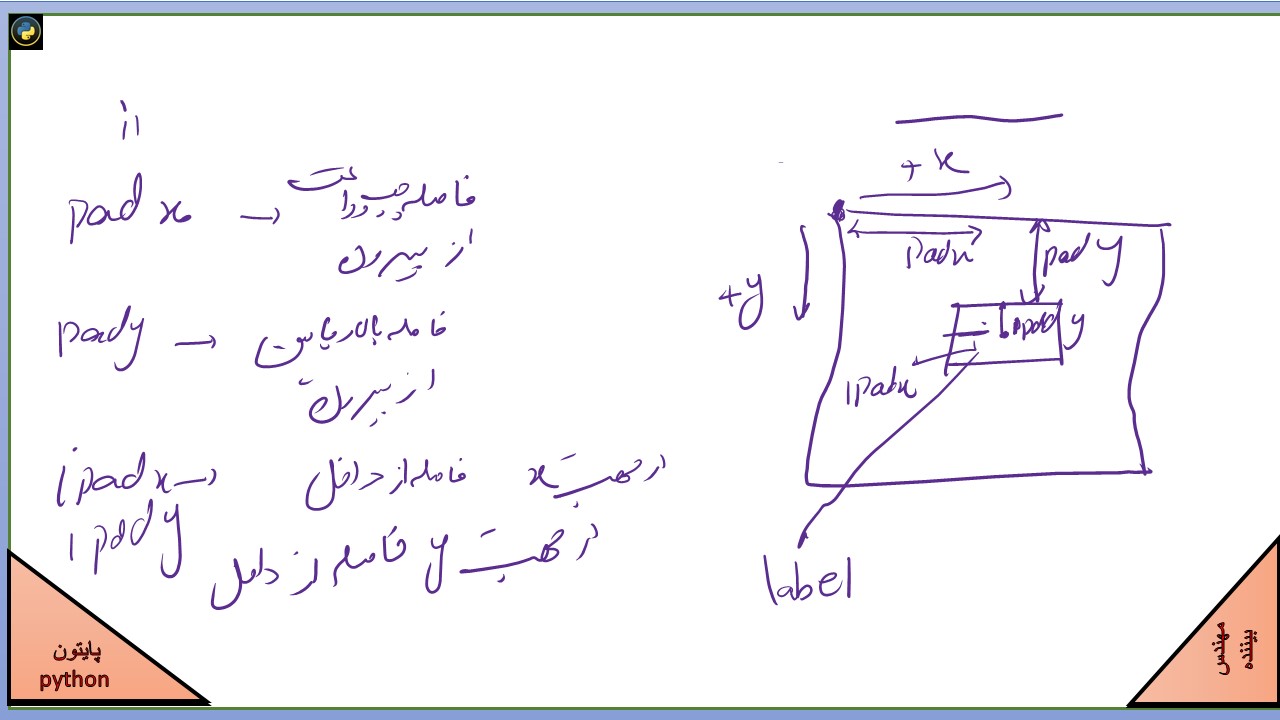 padx → فاصله چپ و راست
از بیرون
pady → فاصله بالا و پایین
از بیرون
ipadx → فاصله از داخل از جهت x
ipady
از جهت y فاصله از داخل
+x
padx
pady
+y
ipady
ipadx
label
پایتون
python
مهندس
بیننده